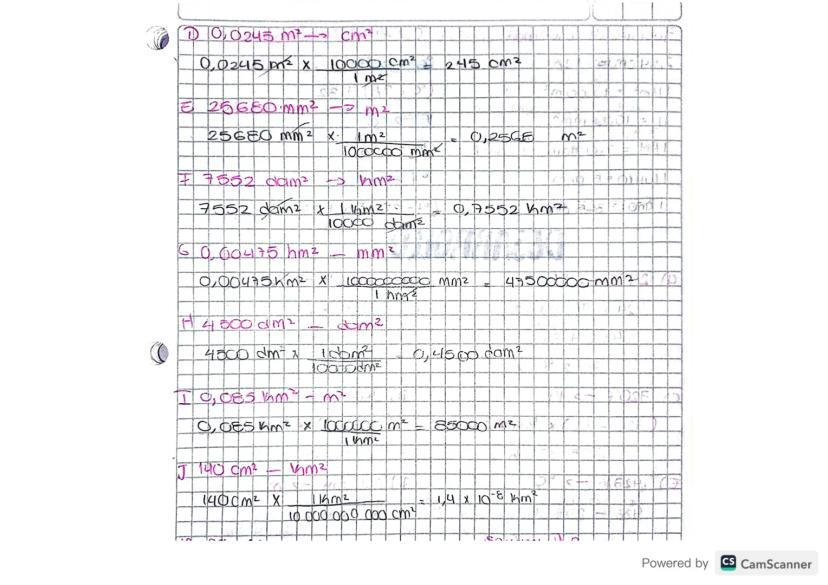 D 0,0245 m² → cm²
0,0245 m² x 10000 cm² / 1 m² = 245 cm²
E 25680 mm² → m²
25680 mm² x 1m² / 1000000 mm² = 0,2568 m²
F 7552 dam² → km²
7552 dam² x 1 km² / 10000 dam² = 0,7552 km²
G 0,00475 hm² — mm²
0,00475 hm² x 10000000000 mm² / 1 hm² = 47500000 mm²
H 4500 dm² — dam²
4500 dm² x 1 dam² / 10000 dm² = 0,4500 dam²
I 0,085 km² - m²
0,085 km² x 1000000 m² / 1 km² = 85000 m²
J 140 cm² — km²
140 cm² x 1 km² / 10 000 000 000 cm² = 1,4 x 10⁻⁸ km²
Powered by CS CamScanner